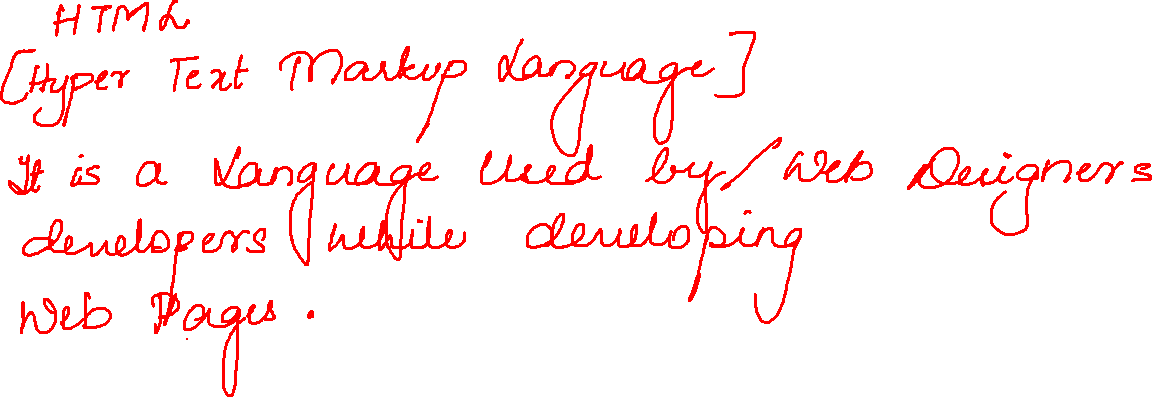 HTML
[Hyper Text Markup Language]
It is a Language Used by/Web Designers
developers while developing
Web Pages.